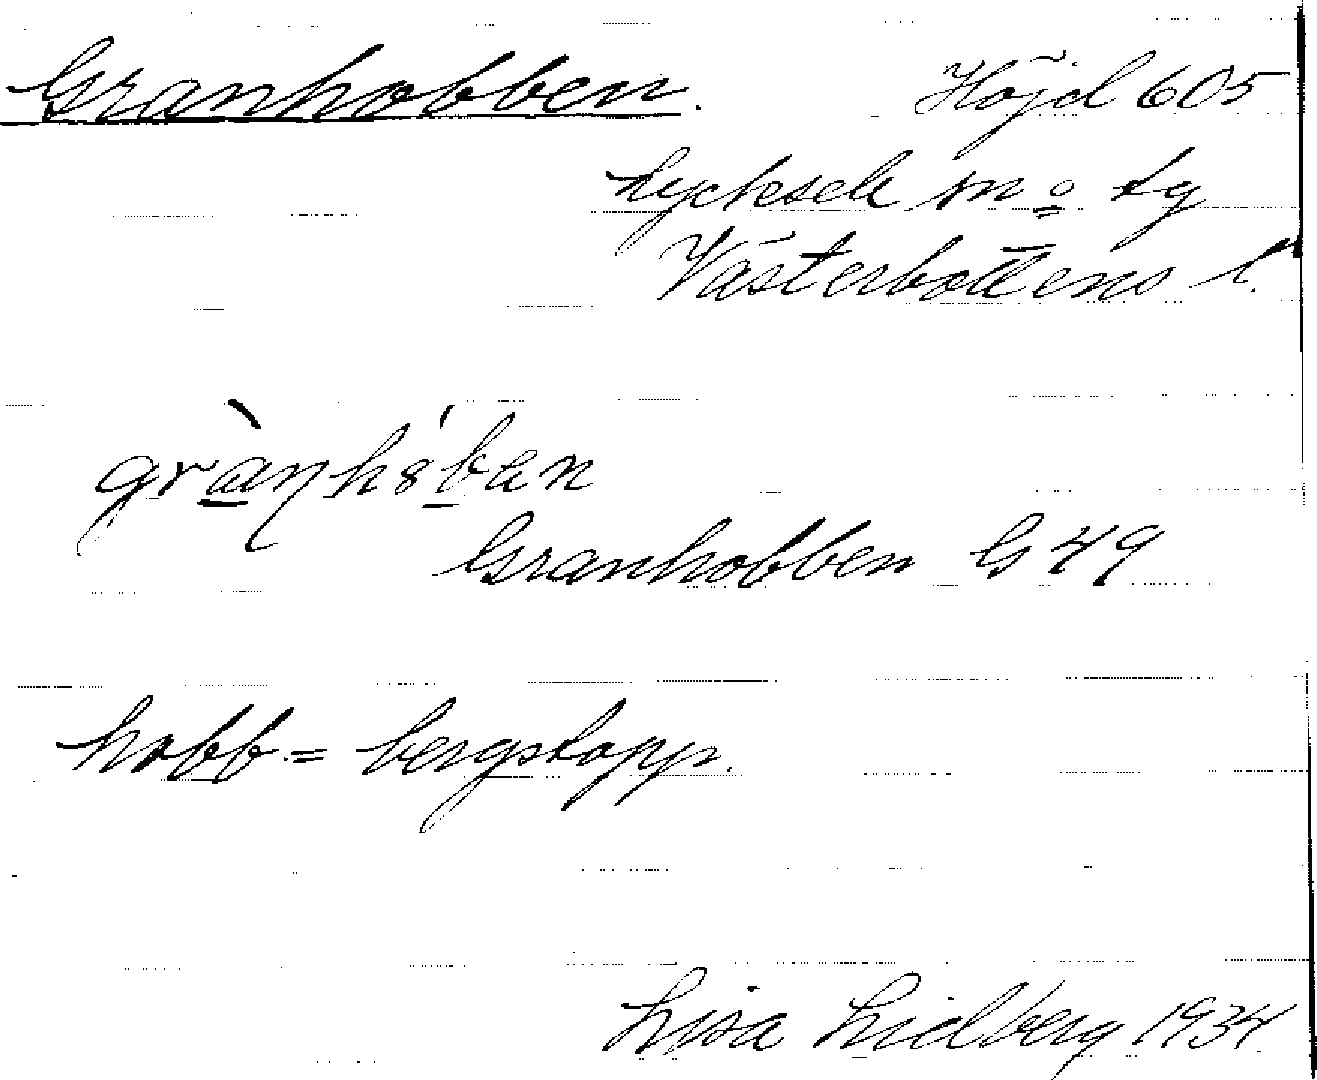 Granhobben. Höjd 605
Lycksele sn o tg
Västerbottens l.
Granhobben G 49
hobb = bergstopp.
Lisa Lidberg 1934